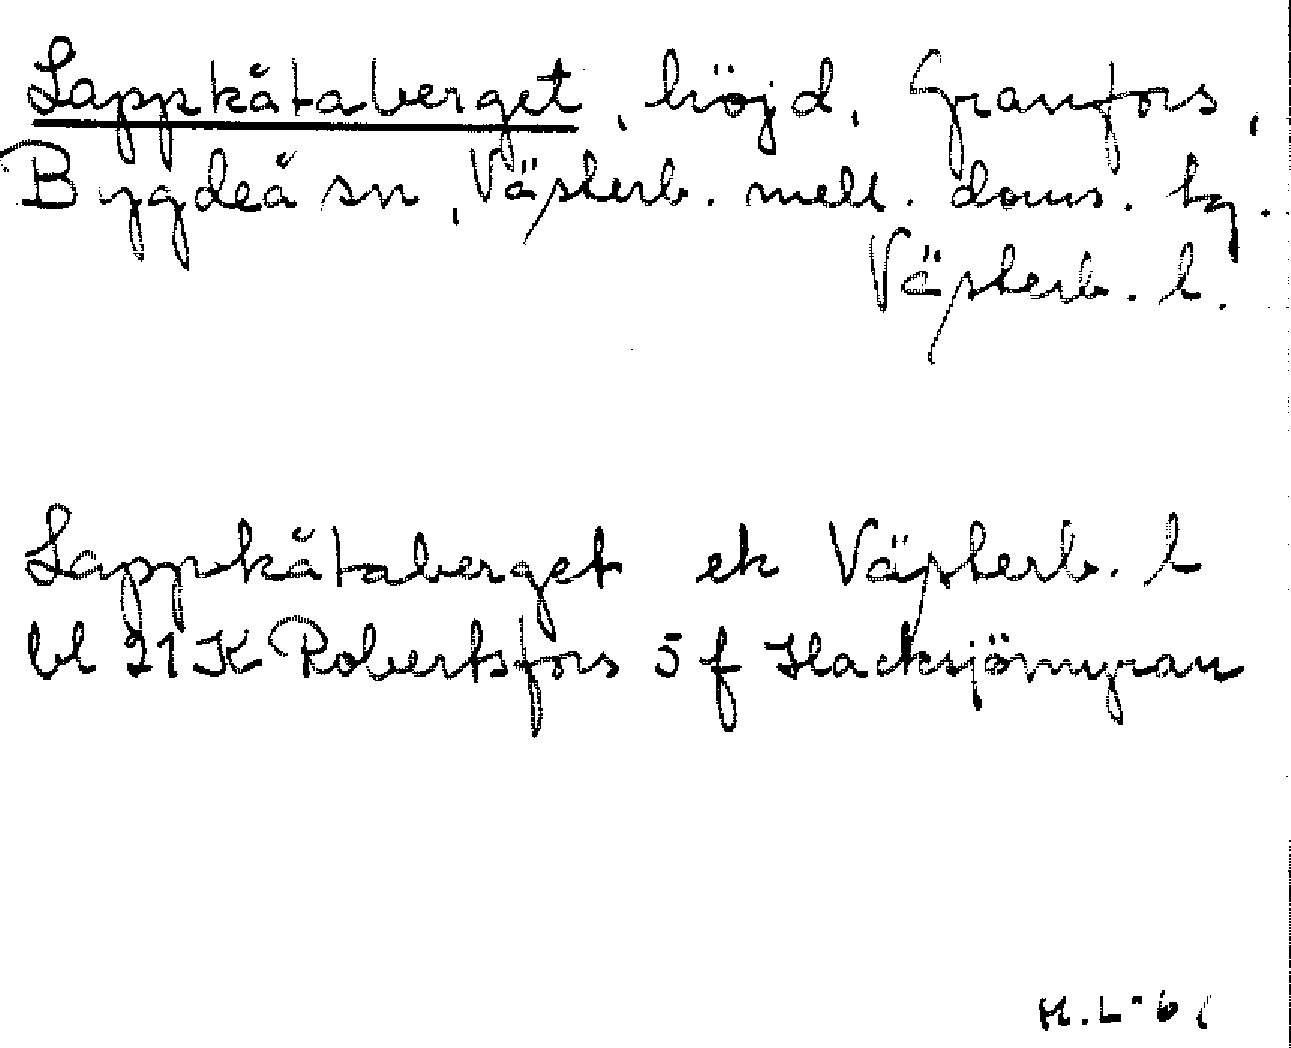 Lappkåtaberget, höjd, Granfors,
Bygdeå sn, Västerb. mell. doms. tg.
Västerb. l.
Lappkåtaberget ek Västerb. l
bl 21 K Robertsfors 5 f Flacksjömyran
H.L-61